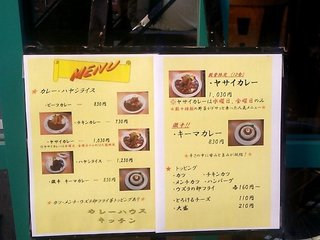 MENU
★ カレー・ハヤシライス
・ビーフカレー ― 830円
・チキンカレー ― 730円
・ヤサイカレー ― 1,030円
・ハヤシライス ― 1,230円
・激辛 キーマカレー 830円
カレーハウス
キッチン
・ヤサイカレー
1,030円
※ヤサイカレーは水曜日、金曜日のみ
激辛!!
・キーマカレー
830円
★ トッピング
・カツ ・チキンカツ
・メンチカツ ・ハンバーグ
・ウズラの卵フライ 各160円
・とろけるチーズ 110円
・大盛 210円